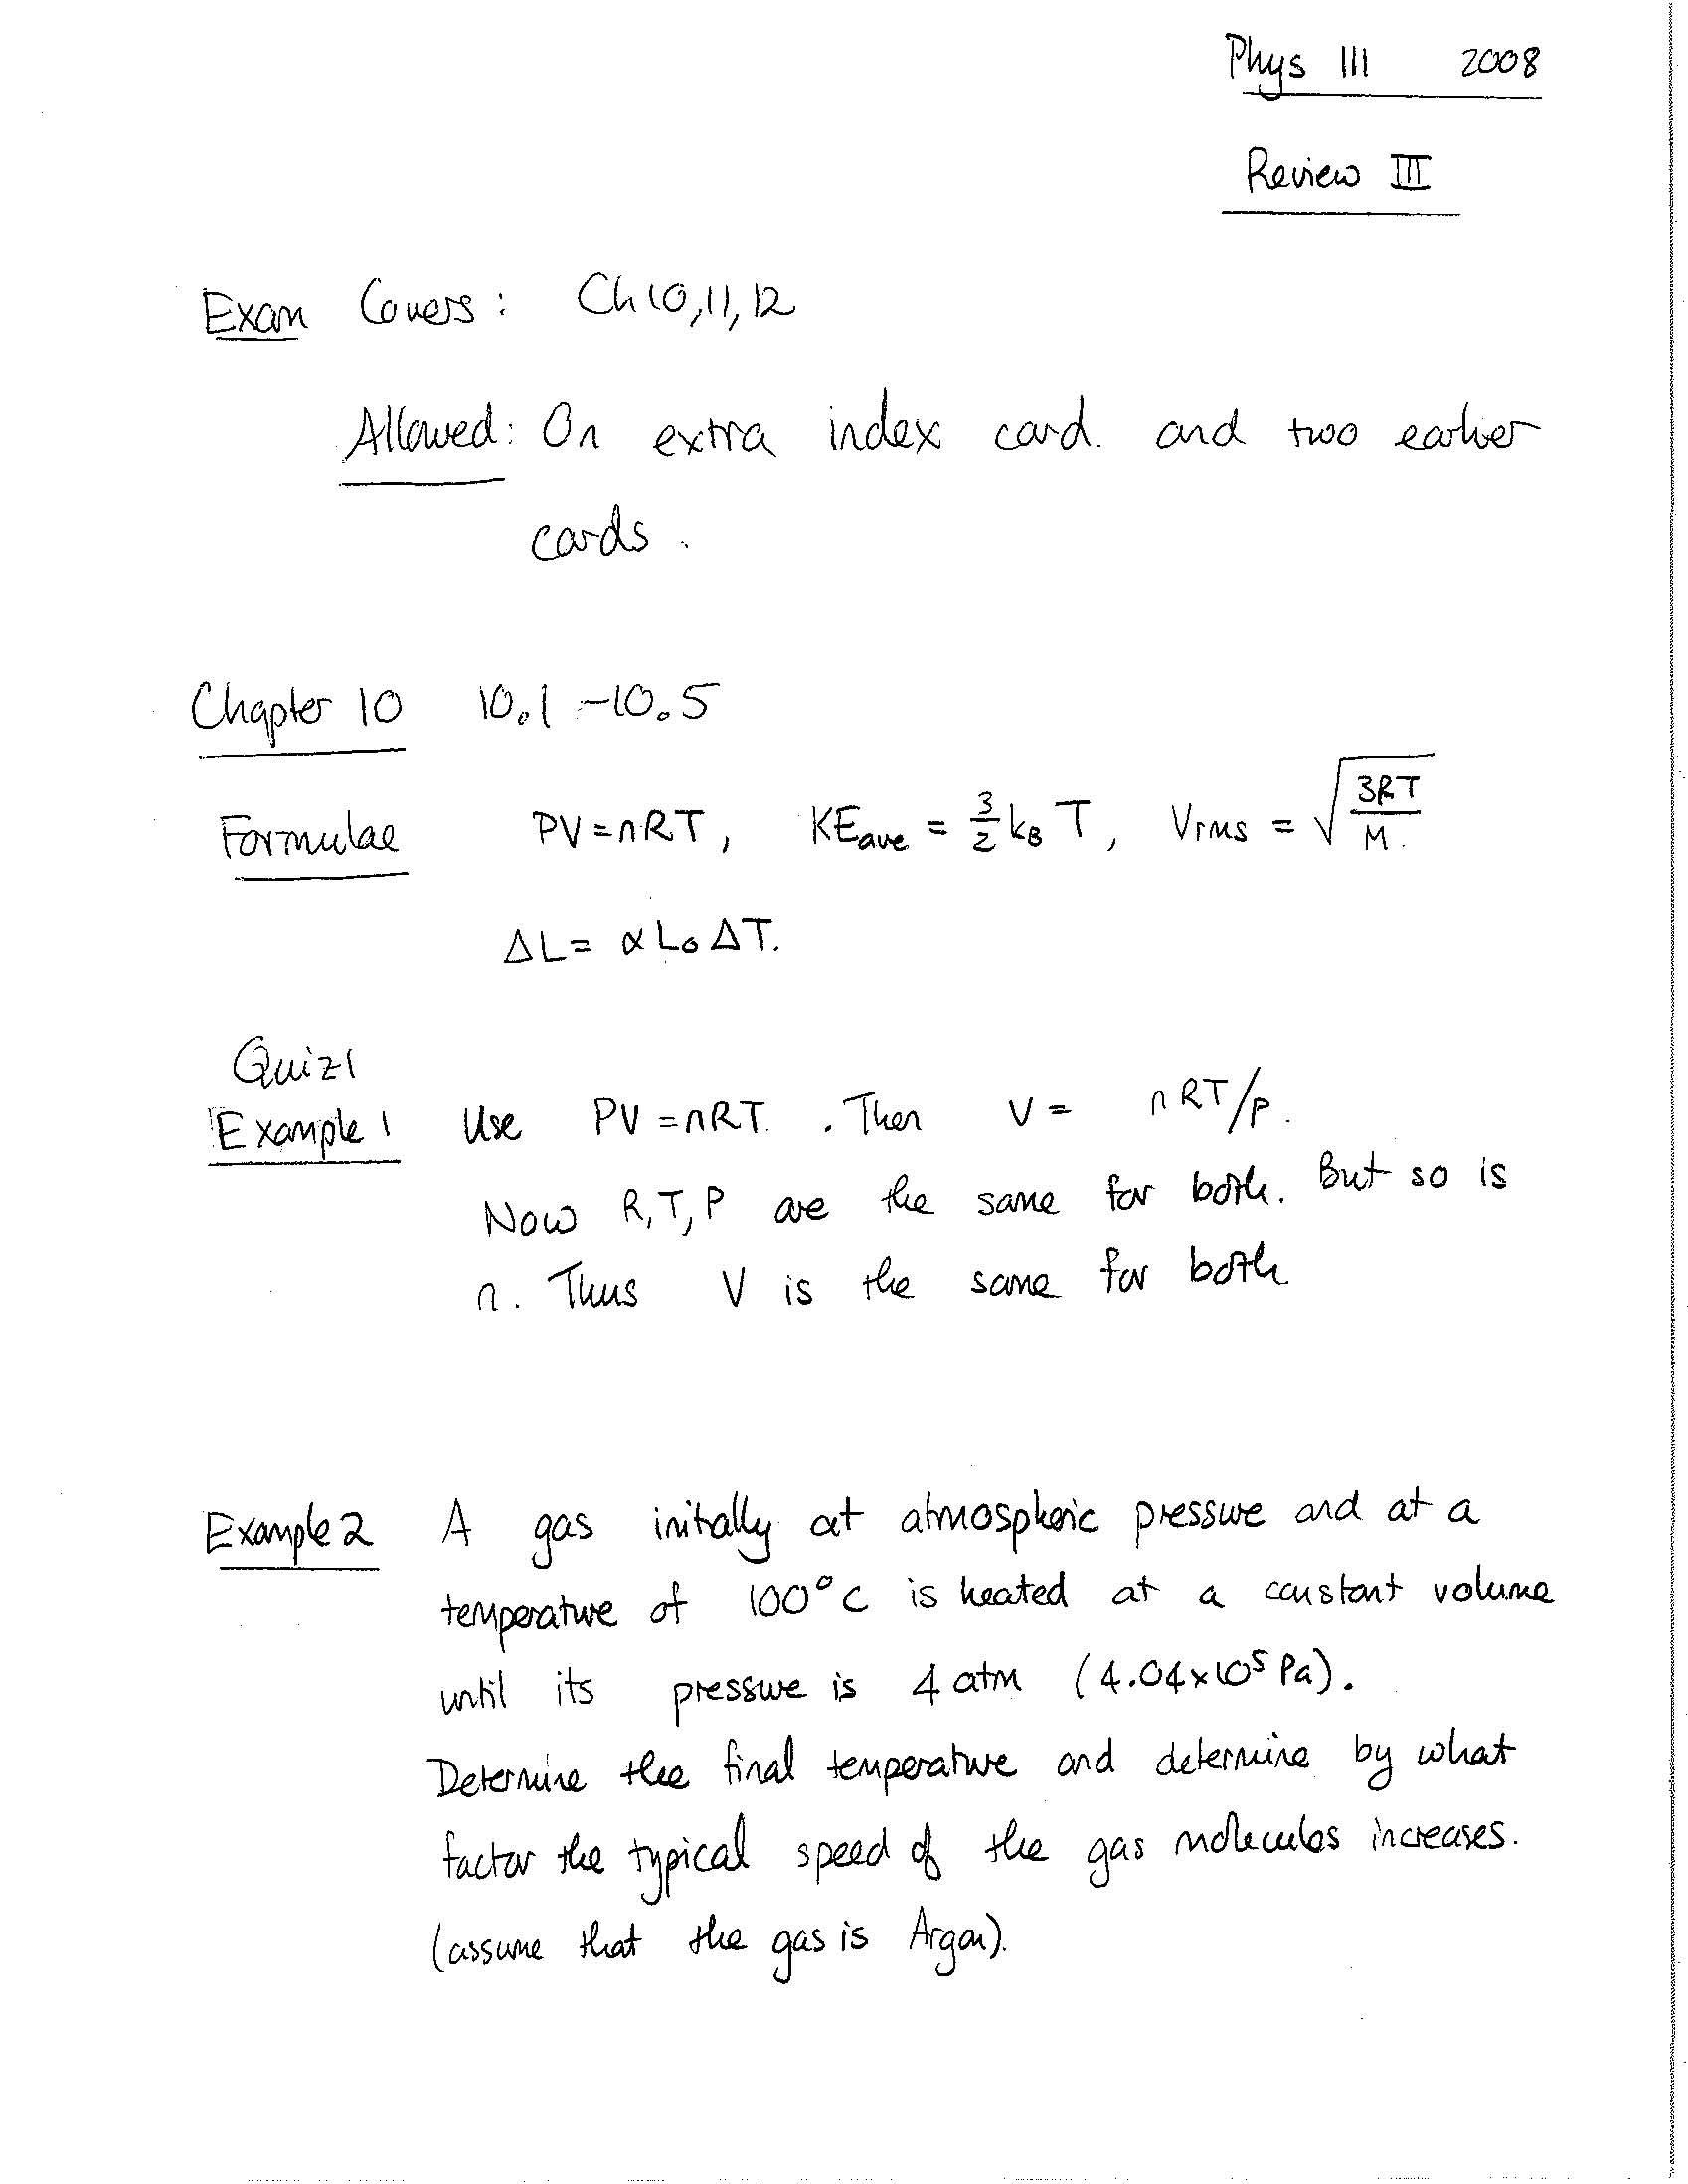 Phys 111 2008
Review III
Exam Covers: Ch 10,11,12
Allowed: On extra index card. and two earlier
cards.
Chapter 10 10.1 - 10.5
Formulae PV = nRT, KEave = 3/2 kB T, Vrms = √(3RT/M).
ΔL = αL₀ΔT.
Quiz 1
Example 1 Use PV = nRT. . Then V = nRT/P.
Now R, T, P are the same for both. But so is
n. Thus V is the same for both
Example 2 A gas initally at atmospheric pressure and at a
temperature of 100°C is heated at a constant volume
until its pressure is 4 atm (4.04×10⁵ Pa).
Determine the final temperature and determine by what
factor the typical speed of the gas molecules increases.
(assume that the gas is Argon).